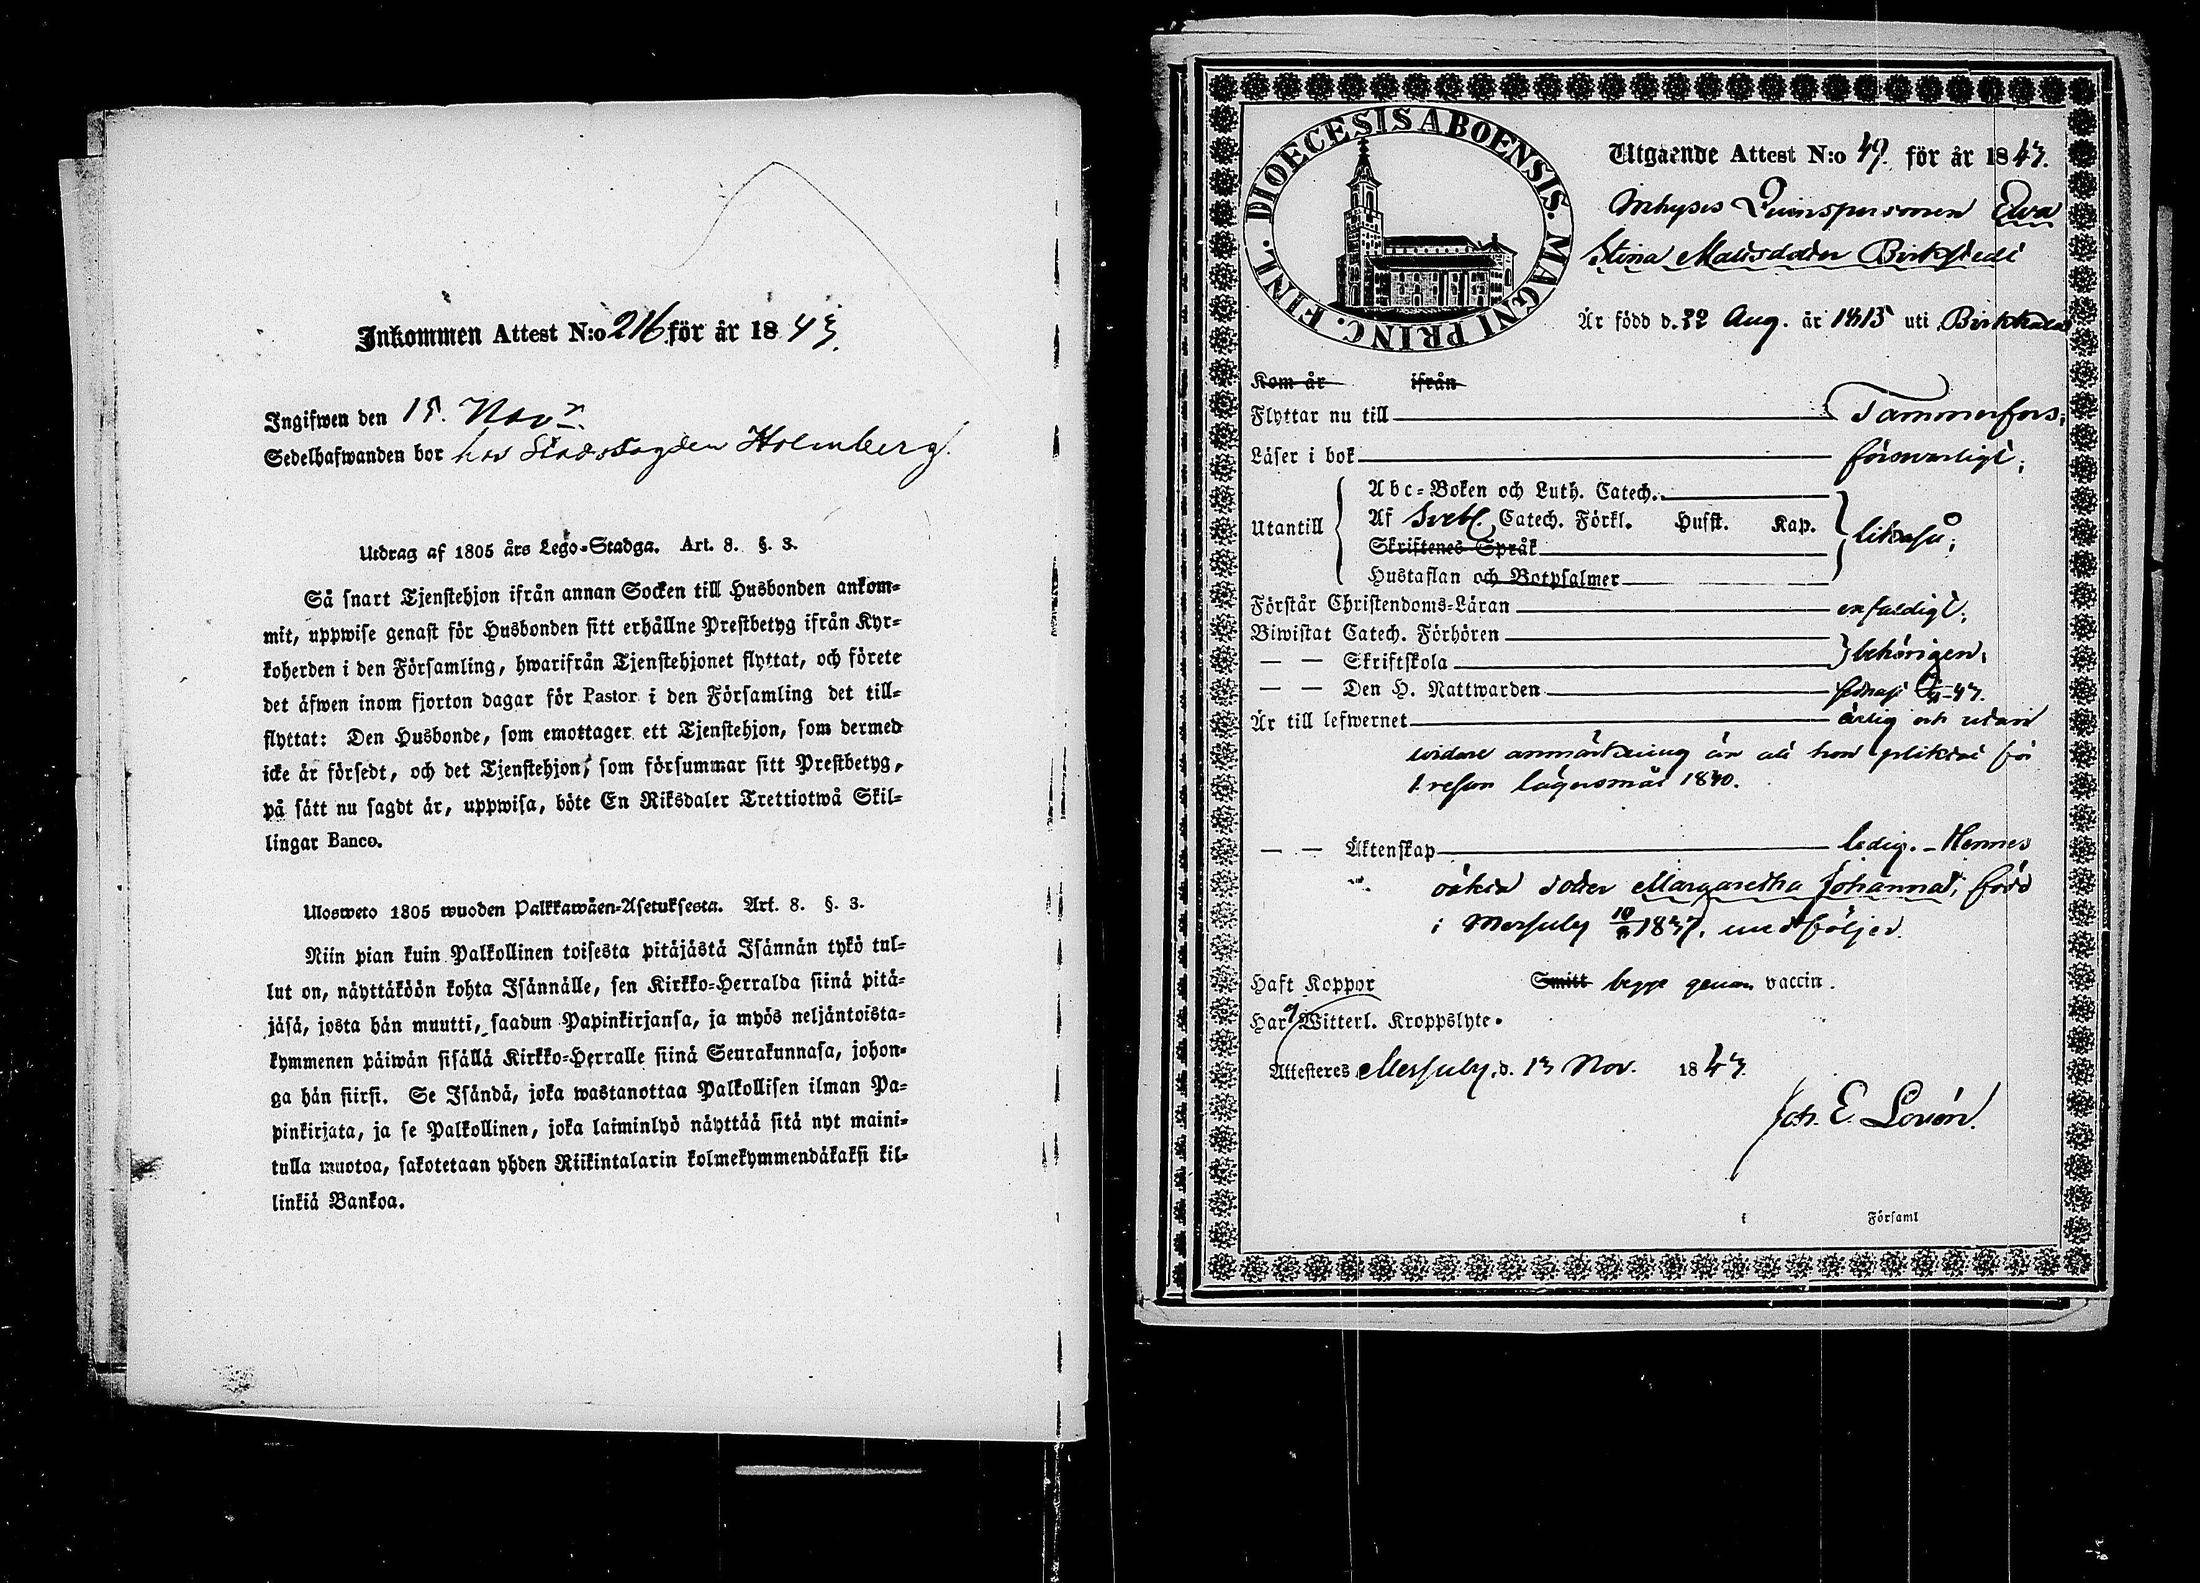 Inkommen Attest N:o 216 för år 1843.
Ingifwen den 15. Nov:r
Sedelhafwanden bor hos Stadsfogden Holmberg.
Utdrag af 1805 års Lego-Stadga. Art. 8. §. 3.
Så snart Tjenstehjon ifrån annan Socken till Husbonden ankom-
mit, uppwise genast för Husbonden sitt erhållne Prestbetyg ifrån Kyr-
koherden i den Församling, hwarifrån Tjenstehjonet flyttat, och förete
det äfwen inom fjorton dagar för Pastor i den Församling det till-
flyttat: Den Husbonde, som emottager ett Tjenstehjon, som dermed
icke är försedt, och det Tjenstehjon, som försummar sitt Prestbetyg,
på sätt nu sagdt är, uppwisa, böte En Riksdaler Trettiotwå Skil-
lingar Banco.
Ulosweto 1805 wuoden Palkkawäen-Asetuksesta. Art. 8. §. 3.
Niin pian kuin Palkollinen toisesta pitäjästä Isännän tykö tul-
lut on, näyttäköön kohta Isännälle, sen Kirkko-Herralda siinä pitä-
jäsä, josta hän muutti, saadun Papinkirjansa, ja myös neljäntoista-
kymmenen päiwän sisällä Kirkko-Herralle siinä Seurakunnasa, johon-
ga hän siirsi. Se Isändä, joka wastanottaa Palkollisen ilman Pa-
pinkirjata, ja se Palkollinen, joka laiminlyö näyttää sitä nyt maini-
tulla muotoa, sakotetaan yhden Riikintalarin kolmekymmendäkaksi kil-
linkiä Bankoa.
DIOECESIS ABOENSIS. MAGNI PRINC. FINL.
Utgående Attest N:o 49. för år 1843.
Inhyses Qvinspersonen Ewa
Stina Matisdotter Birkstedt
Är född d. 22 Aug. år 1815 uti Birkkala
Kom år ifrån
Flyttar nu till Tammerfors;
Läser i bok försvarligt;
Utantill
Abc-Boken och Luth. Catech.
Af Svebl. Catech. Förkl. Husst. Kap.
likaså;
Skriftenes Språk
Hustaflan och Botpsalmer
Förstår Christendoms-Läran enfaldigt;
Biwistat Catech. Förhören
— — Skriftskola behörigen;
— — Den H. Nattwarden
Är till lefwernet ärlig och utan
widare anmärkning än att hon pliktat för
1. resan lägersmål 1840.
— — Äktenskap ledig. - Hennes
oäkta dotter Margaretha Johanna, född
i Messuby 1837, medföljer.
Haft Koppor Smitt begge genom vaccin.
Har Witterl. Kroppslyte.
Attesteres Messuby, d. 13 Nov. 1843.
Joh. E. Lovén.
i Församl